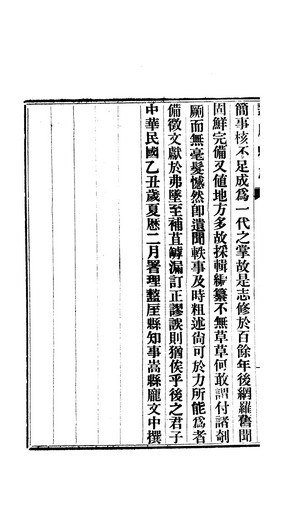 簡事核不足成爲一代之掌故是志修於百餘年後網羅舊聞
固鮮完備又値地方多故採輯編纂不無草草何敢謂付諸剞
劂而無毫髮憾然卽遺聞軼事及時粗述尙可於力所能爲者
備徵文獻於弗墜至補苴罅漏訂正謬誤則猶俟乎後之君子
中華民國乙丑歲夏厯二月署理盩厔縣知事嵩縣龐文中撰